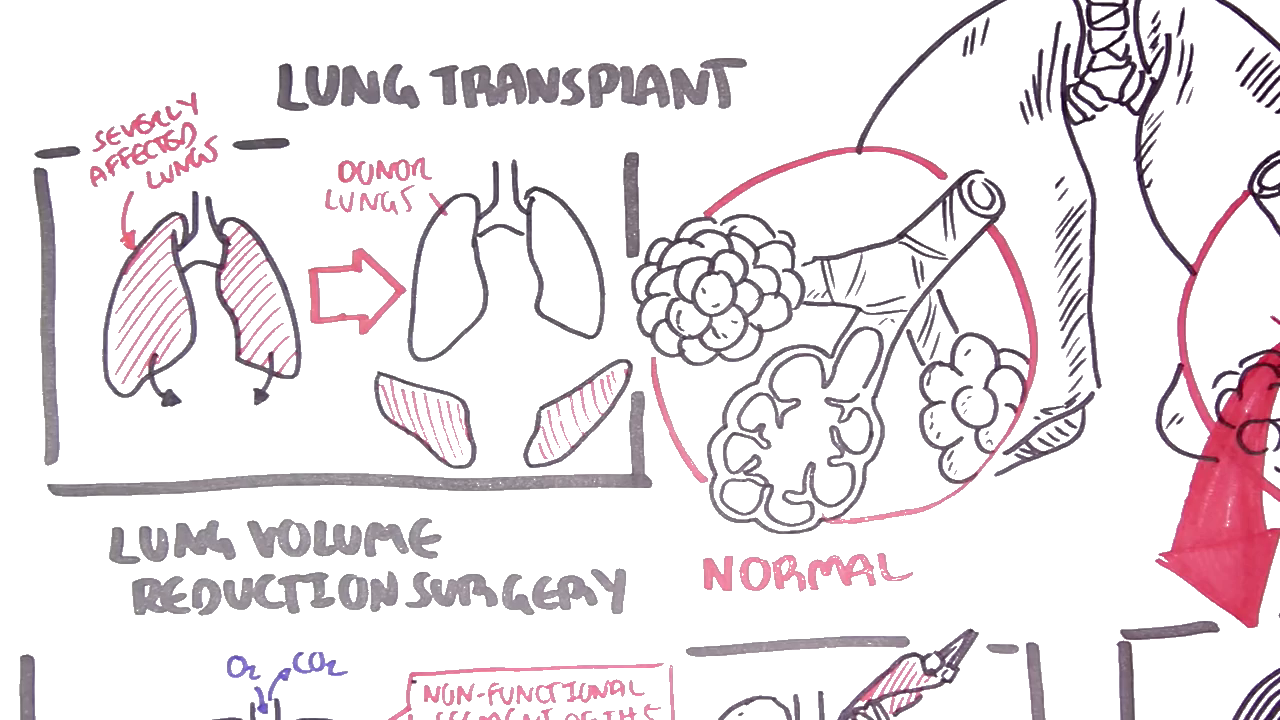 LUNG TRANSPLANT
SEVERLY
AFFECTED
LUNGS
DONOR
LUNGS
NORMAL
LUNG VOLUME
REDUCTION SURGERY
O2
CO2
NON-FUNCTIONAL
SEGMENT OF